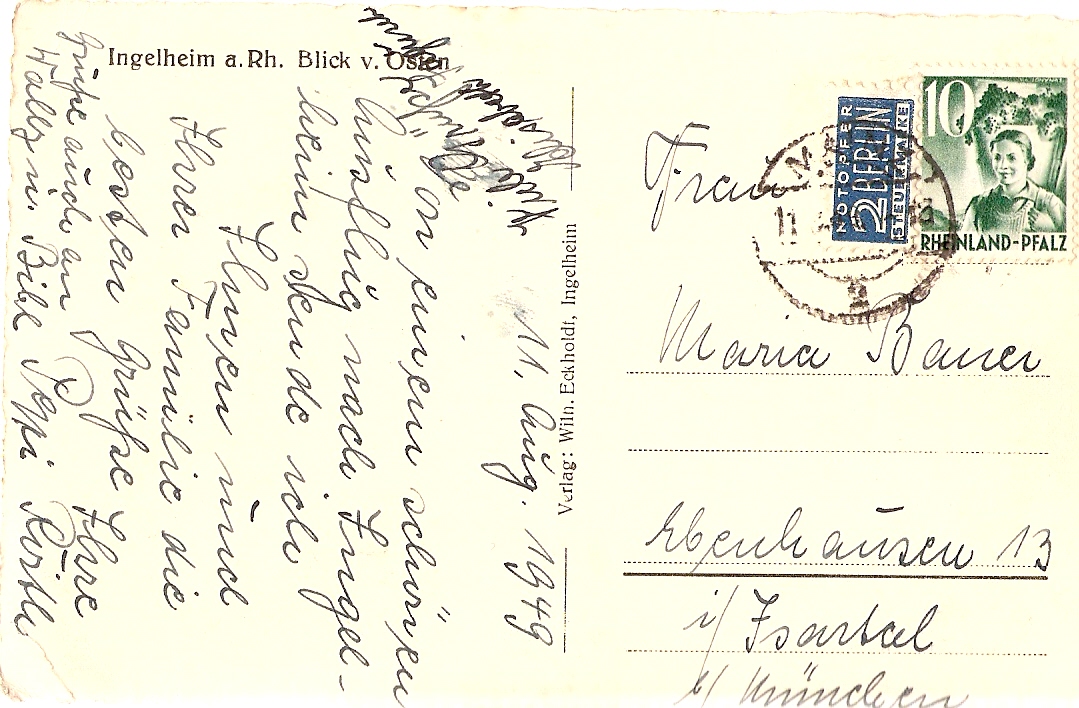 Ingelheim a. Rh. Blick v. Osten
11. Aug. 1949
Von einem schönen
Ausflug nach Ingel-
heim sende ich
Ihnen und
Ihrer Familie die
besten Grüße Ihre
Grüße auch an
Wally u. Bibl
Verlag: Wilh. Eckholdt, Ingelheim
10
RHEINLAND-PFALZ
NOTOPFER
2 BERLIN
STEUERMARKE
Frau
Maria Bauer
Ebenhausen 13
i/ Isartal
b/ München